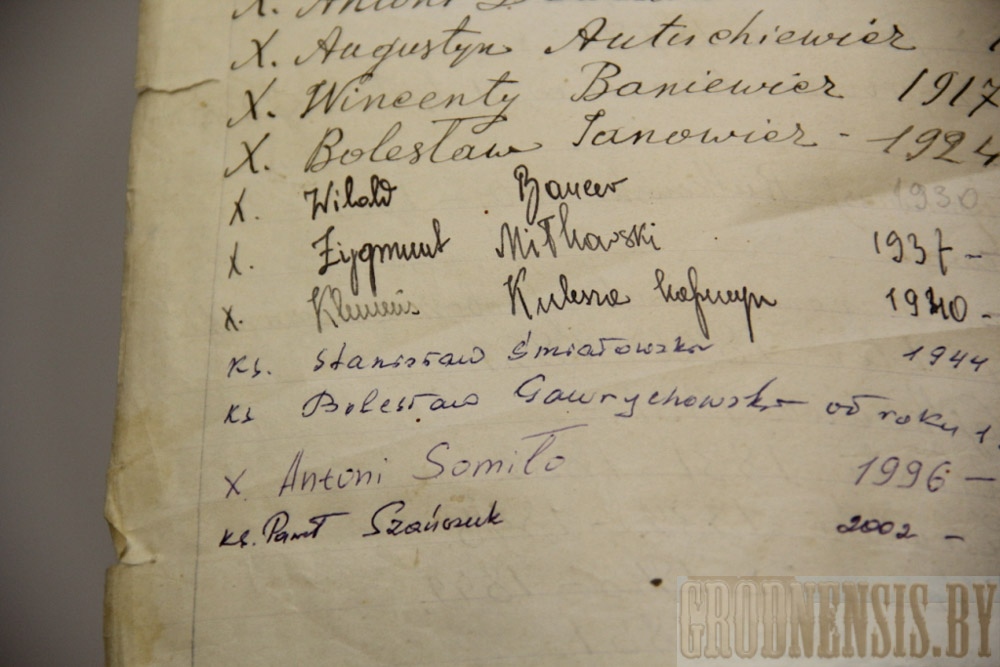 X. Antoni
X. Augustyn Autuchiewicz
X. Wincenty Baniewicz 1917
X. Bolesław Janowicz - 1924
X. Witold 1930
X. Zygmunt Miłkowski 1937 -
X. Klemens Kulesza 1940 -
ks. Stanisław Śmiałowski 1944
ks Bolesław Gawrychowski od roku 1
X Antoni Somiło 1996 -
ks. Paweł Szańczuk 2002 -
GRODNENSIS.BY